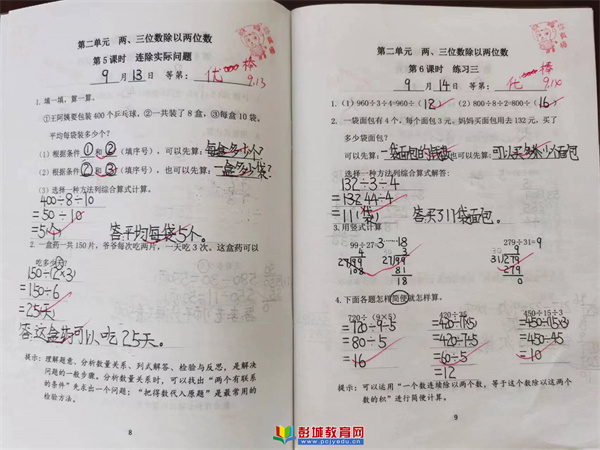 第二单元 两、三位数除以两位数
第5课时 连除实际问题
9月13日 等第: 优 棒
9.13
1. 填一填,算一算。
①王阿姨要包装400个乒乓球,②一共装了8盒,③每盒10袋。
平均每袋装多少个?
(1) 根据条件①和②(填序号),可以先算:每盒多少个?
(2) 根据条件②和③(填序号),也可以先算:一盒多少袋?
(3) 选择一种方法列综合算式计算。
400÷8÷10
=50÷10
=5(个)
答:平均每袋5个。
2. 一盒药一共150片,爷爷每次吃两片,一天吃3次。这盒药可以
吃多少天?
150÷(2×3)
=150÷6
=25(天)
答:这盒药可以吃25天。
提示:理解题意、分析数量关系、列式解答、检验与反思,是解决
问题的一般步骤。分析数量关系时,可以找出“两个有联系
的条件”先求出一个问题;“把得数代入原题”是最常用的
检验方法。
8
第二单元 两、三位数除以两位数
第6课时 练习三
9月14日 等第: 优 棒
1. (1) 960÷3÷4=960÷(12) (2) 800÷8÷2=800÷(16)
2. 一袋面包有4个,每个面包3元,妈妈买面包用去132元,买了
多少袋面包?
可以先算:一袋面包的钱数 也可以先算:可以买多少个面包
选择一种方法列综合算式解答:
132÷3÷4
=44÷4
=11(袋)
答:买了11袋面包。
3. 用竖式计算
99÷27=3……18 279÷31=9
4. 下面各题怎样简便就怎样算。
720÷(9×5) 420÷35 450÷15÷3
=720÷9÷5 =420÷(7×5) =450÷(15×3)
=80÷5 =420÷7÷5 =450÷45
=16 =60÷5 =10
=12
提示:可以运用“一个数连续除以两个数,等于这个数除以这两个
数的积”进行简便计算。
9
彭城教育网
www.pcjyedu.cn